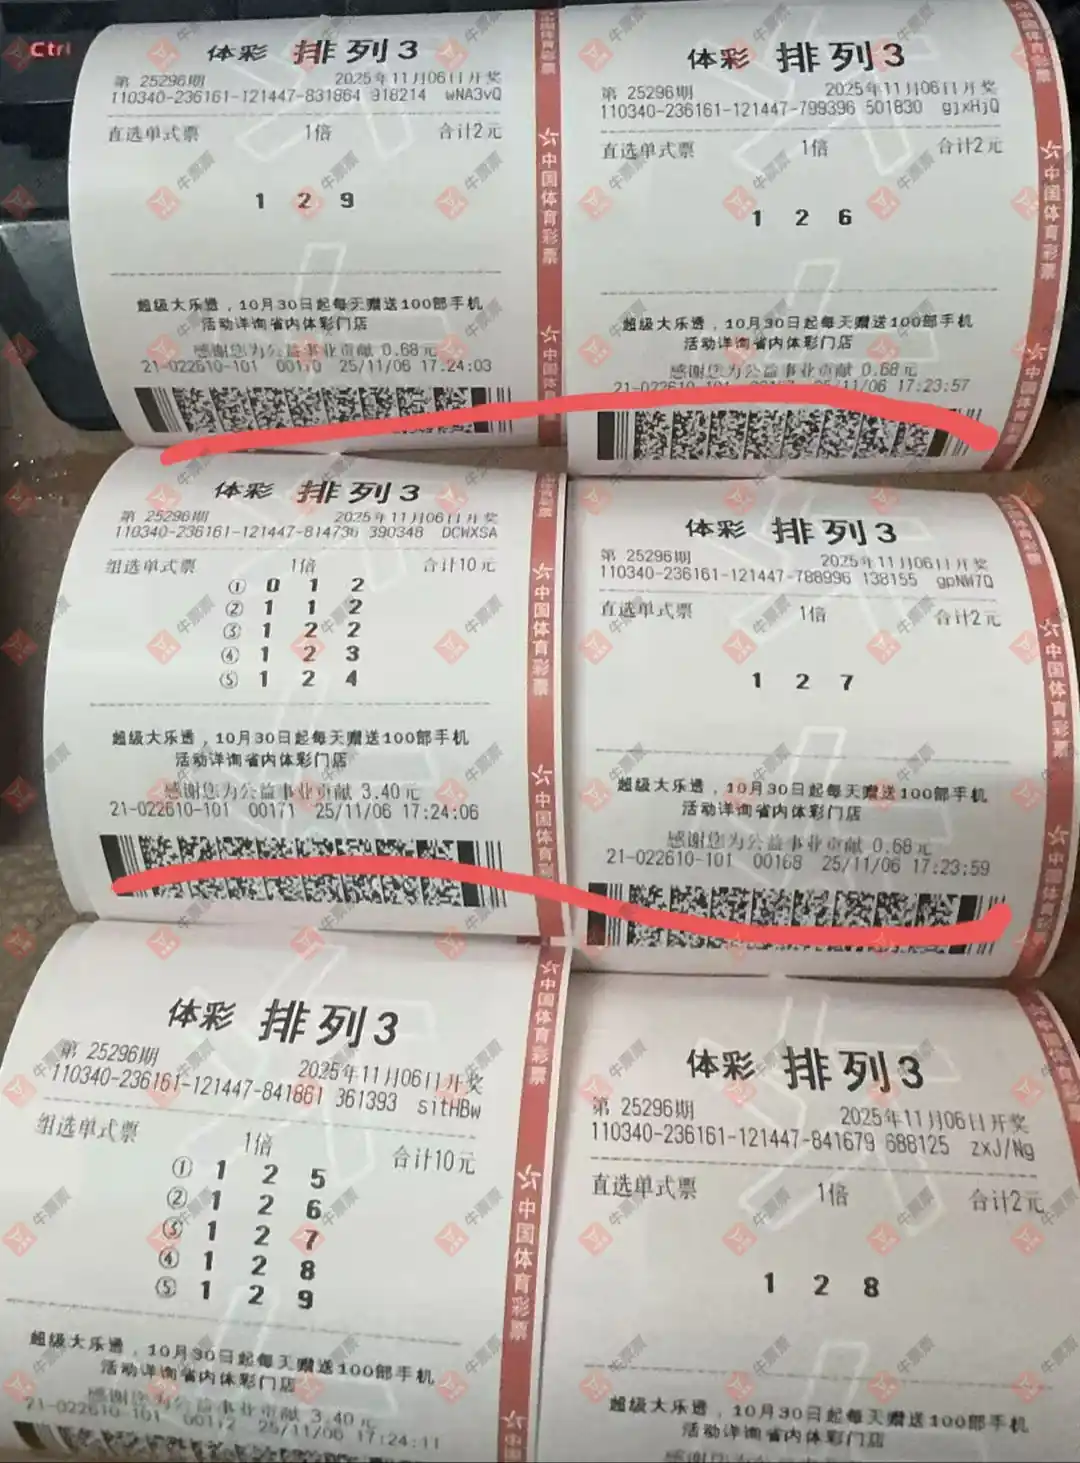 Ctrl
体彩 排列3
第 25296期 2025年11月06日开奖
110340-236161-121447-831864 918214 wNA3vQ
直选单式票 1倍 合计2元
1 2 9
超级大乐透，10月30日起每天赠送100部手机
活动详询省内体彩门店
感谢您为公益事业贡献 0.68元
21-022610-101 00170 25/11/06 17:24:03
中国体育彩票
体彩 排列3
第 25296期 2025年11月06日开奖
110340-236161-121447-799396 501830 gjxHjQ
直选单式票 1倍 合计2元
1 2 6
超级大乐透，10月30日起每天赠送100部手机
活动详询省内体彩门店
感谢您为公益事业贡献 0.68元
21-022610-101 25/11/06 17:23:57
中国体育彩票
体彩 排列3
第 25296期 2025年11月06日开奖
110340-236161-121447-814736 390348 DCWXSA
组选单式票 1倍 合计10元
① 0 1 2
② 1 1 2
③ 1 2 2
④ 1 2 3
⑤ 1 2 4
超级大乐透，10月30日起每天赠送100部手机
活动详询省内体彩门店
感谢您为公益事业贡献 3.40元
21-022610-101 00171 25/11/06 17:24:06
中国体育彩票
体彩 排列3
第 25296期 2025年11月06日开奖
110340-236161-121447-788996 138155 gpNW7Q
直选单式票 1倍 合计2元
1 2 7
超级大乐透，10月30日起每天赠送100部手机
活动详询省内体彩门店
感谢您为公益事业贡献 0.68元
21-022610-101 00168 25/11/06 17:23:59
中国体育彩票
体彩 排列3
第 25296期 2025年11月06日开奖
110340-236161-121447-841861 361393 sitHBw
组选单式票 1倍 合计10元
① 1 2 5
② 1 2 6
③ 1 2 7
④ 1 2 8
⑤ 1 2 9
超级大乐透，10月30日起每天赠送100部手机
活动详询省内体彩门店
感谢您为公益事业贡献 3.40元
21-022610-101 00172 25/11/06 17:24:11
中国体育彩票
体彩 排列3
第 25296期 2025年11月06日开奖
110340-236161-121447-841679 688125 zxJ/Ng
直选单式票 1倍 合计2元
1 2 8
超级大乐透，10月30日起每天赠送100部手机
活动详询省内体彩门店
感谢您为公益事业贡献 0.68元
牛票票